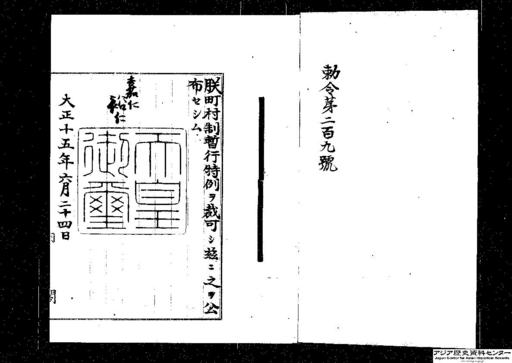 勅令第二百九號
朕町村制暫行特例ヲ裁可シ玆ニ之ヲ公
布セシム
嘉仁
裕仁
天皇
御璽
大正十五年六月二十四日
アジア歴史資料センター
Japan Center for Asian Historical Records